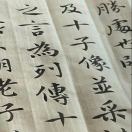 勝處也
及十子像並采
之言為列傳十
明老子